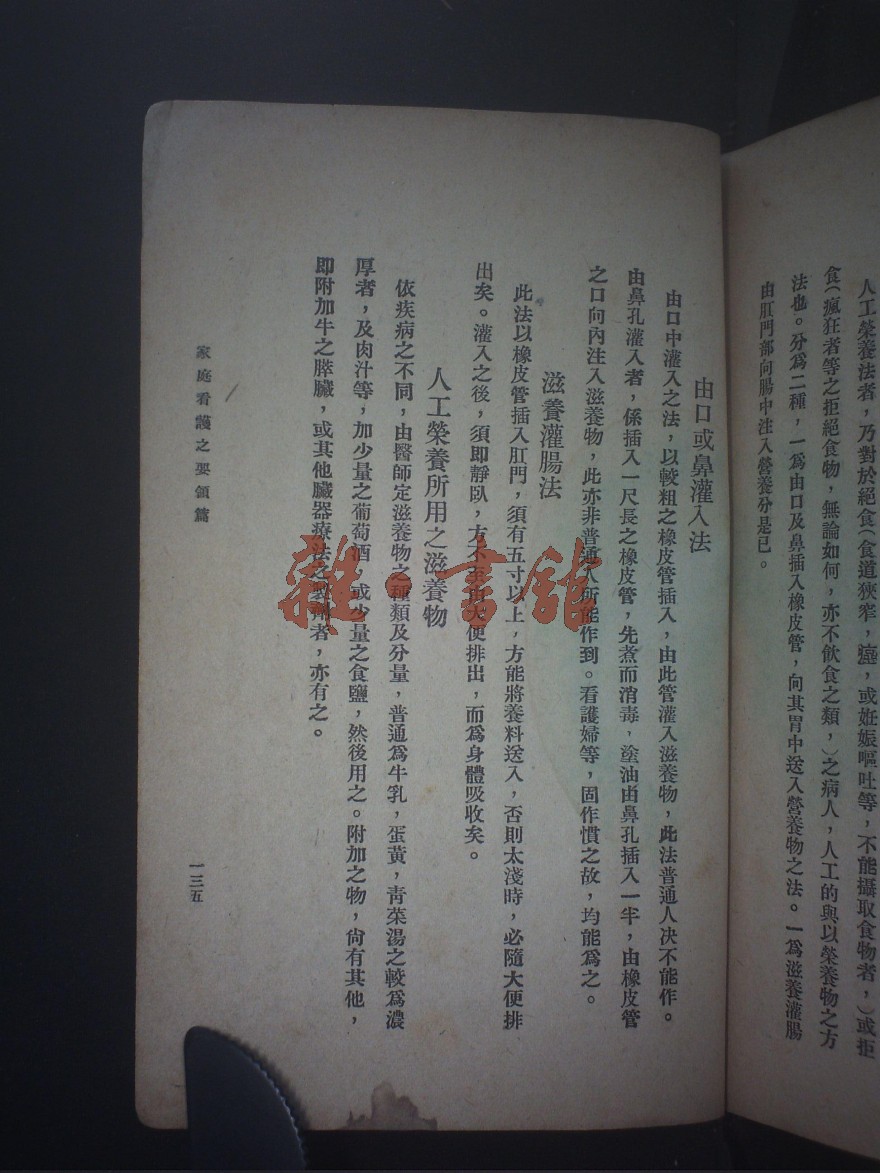 人工榮養法者，乃對於絕食（食道狹窄，或妊娠嘔吐等，不能攝取食物者，）或拒
食（瘋狂者等之拒絕食物，無論如何，亦不飲食之類，）之病人，人工的與以榮養物之方
法也。分爲二種，一爲由口及鼻插入橡皮管，向其胃中送入營養物之法。一爲滋養灌腸
由肛門部向腸中注入營養分是已。
由口或鼻灌入法
由口中灌入之法，以較粗之橡皮管插入，由此管灌入滋養物，此法普通人决不能作。
由鼻孔灌入者，係插入一尺長之橡皮管，先煮而消毒，塗油由鼻孔插入一半，由橡皮管
之口向內注入滋養物，此亦非普通人所能作到。看護婦等，固作慣之故，均能爲之。
滋養灌腸法
此法以橡皮管插入肛門，須有五寸以上，方能將養料送入，否則太淺時，必隨大便排
出矣。灌入之後，須即靜臥，方不至由大便排出，而爲身體吸收矣。
人工榮養所用之滋養物
依疾病之不同，由醫師定滋養物之種類及分量，普通爲牛乳，蛋黃，靑菜湯之較爲濃
厚者，及肉汁等，加少量之葡萄酒，或少量之食鹽，然後用之。附加之物，尙有其他，
即附加牛之膵臟，或其他臟器療法之製劑者，亦有之。
家庭看護之要領篇
一三五
雜·書館